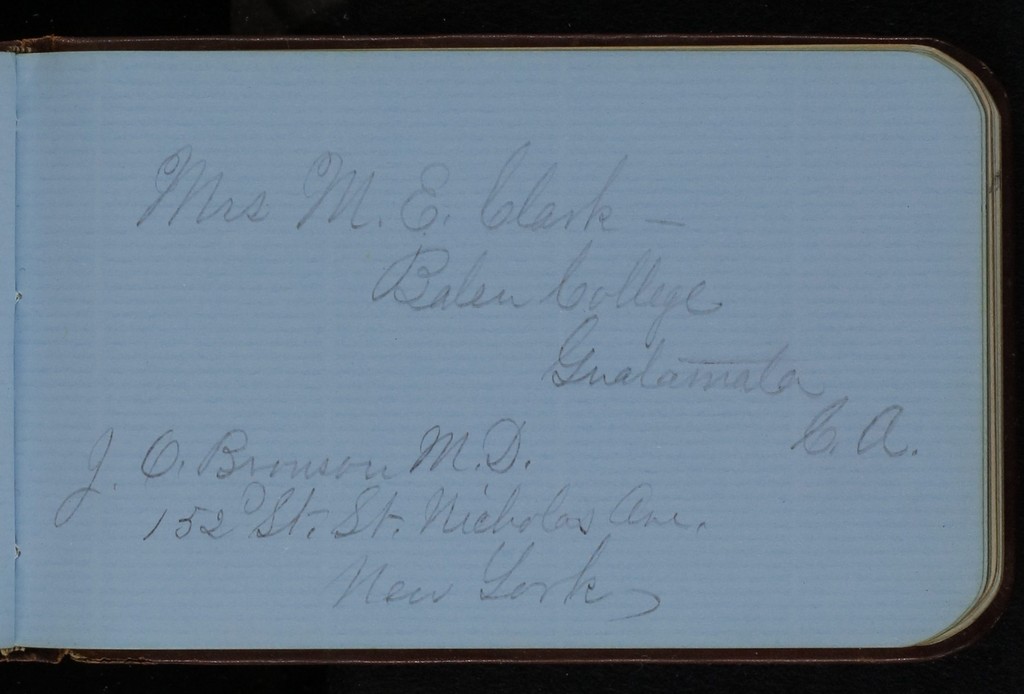 Mrs M. E. Clark —
Belen College
Guatamala
C. A.
J. O. Bronson M.D.
152 St. St. Nicholas Ave.
New York